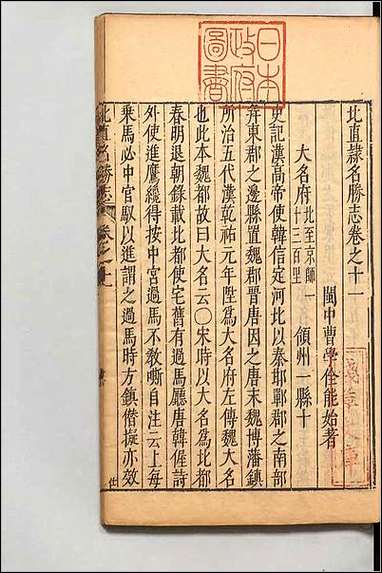 日本
政府
圖書
北直隸名勝志卷之十一
閩中曹學佺能始著
大名府北至京師一千三百里 領州一縣十
史記漢高帝使韓信定河北以秦邯鄲郡之南部
并東郡之邊縣置魏郡晉唐因之唐末魏博藩鎮
所治五代漢乾祐元年陞爲大名府左傳魏大名
也此本魏都故曰大名云○宋時以大名爲北都
春明退朝錄載北都使宅舊有過馬㕔唐韓偓詩
外使進鷹䌫得按中宫過馬不敎嘶自注云上每
乘馬必中官馭以進謂之過馬時方鎮僭擬亦效
北直名勝志 卷之十一